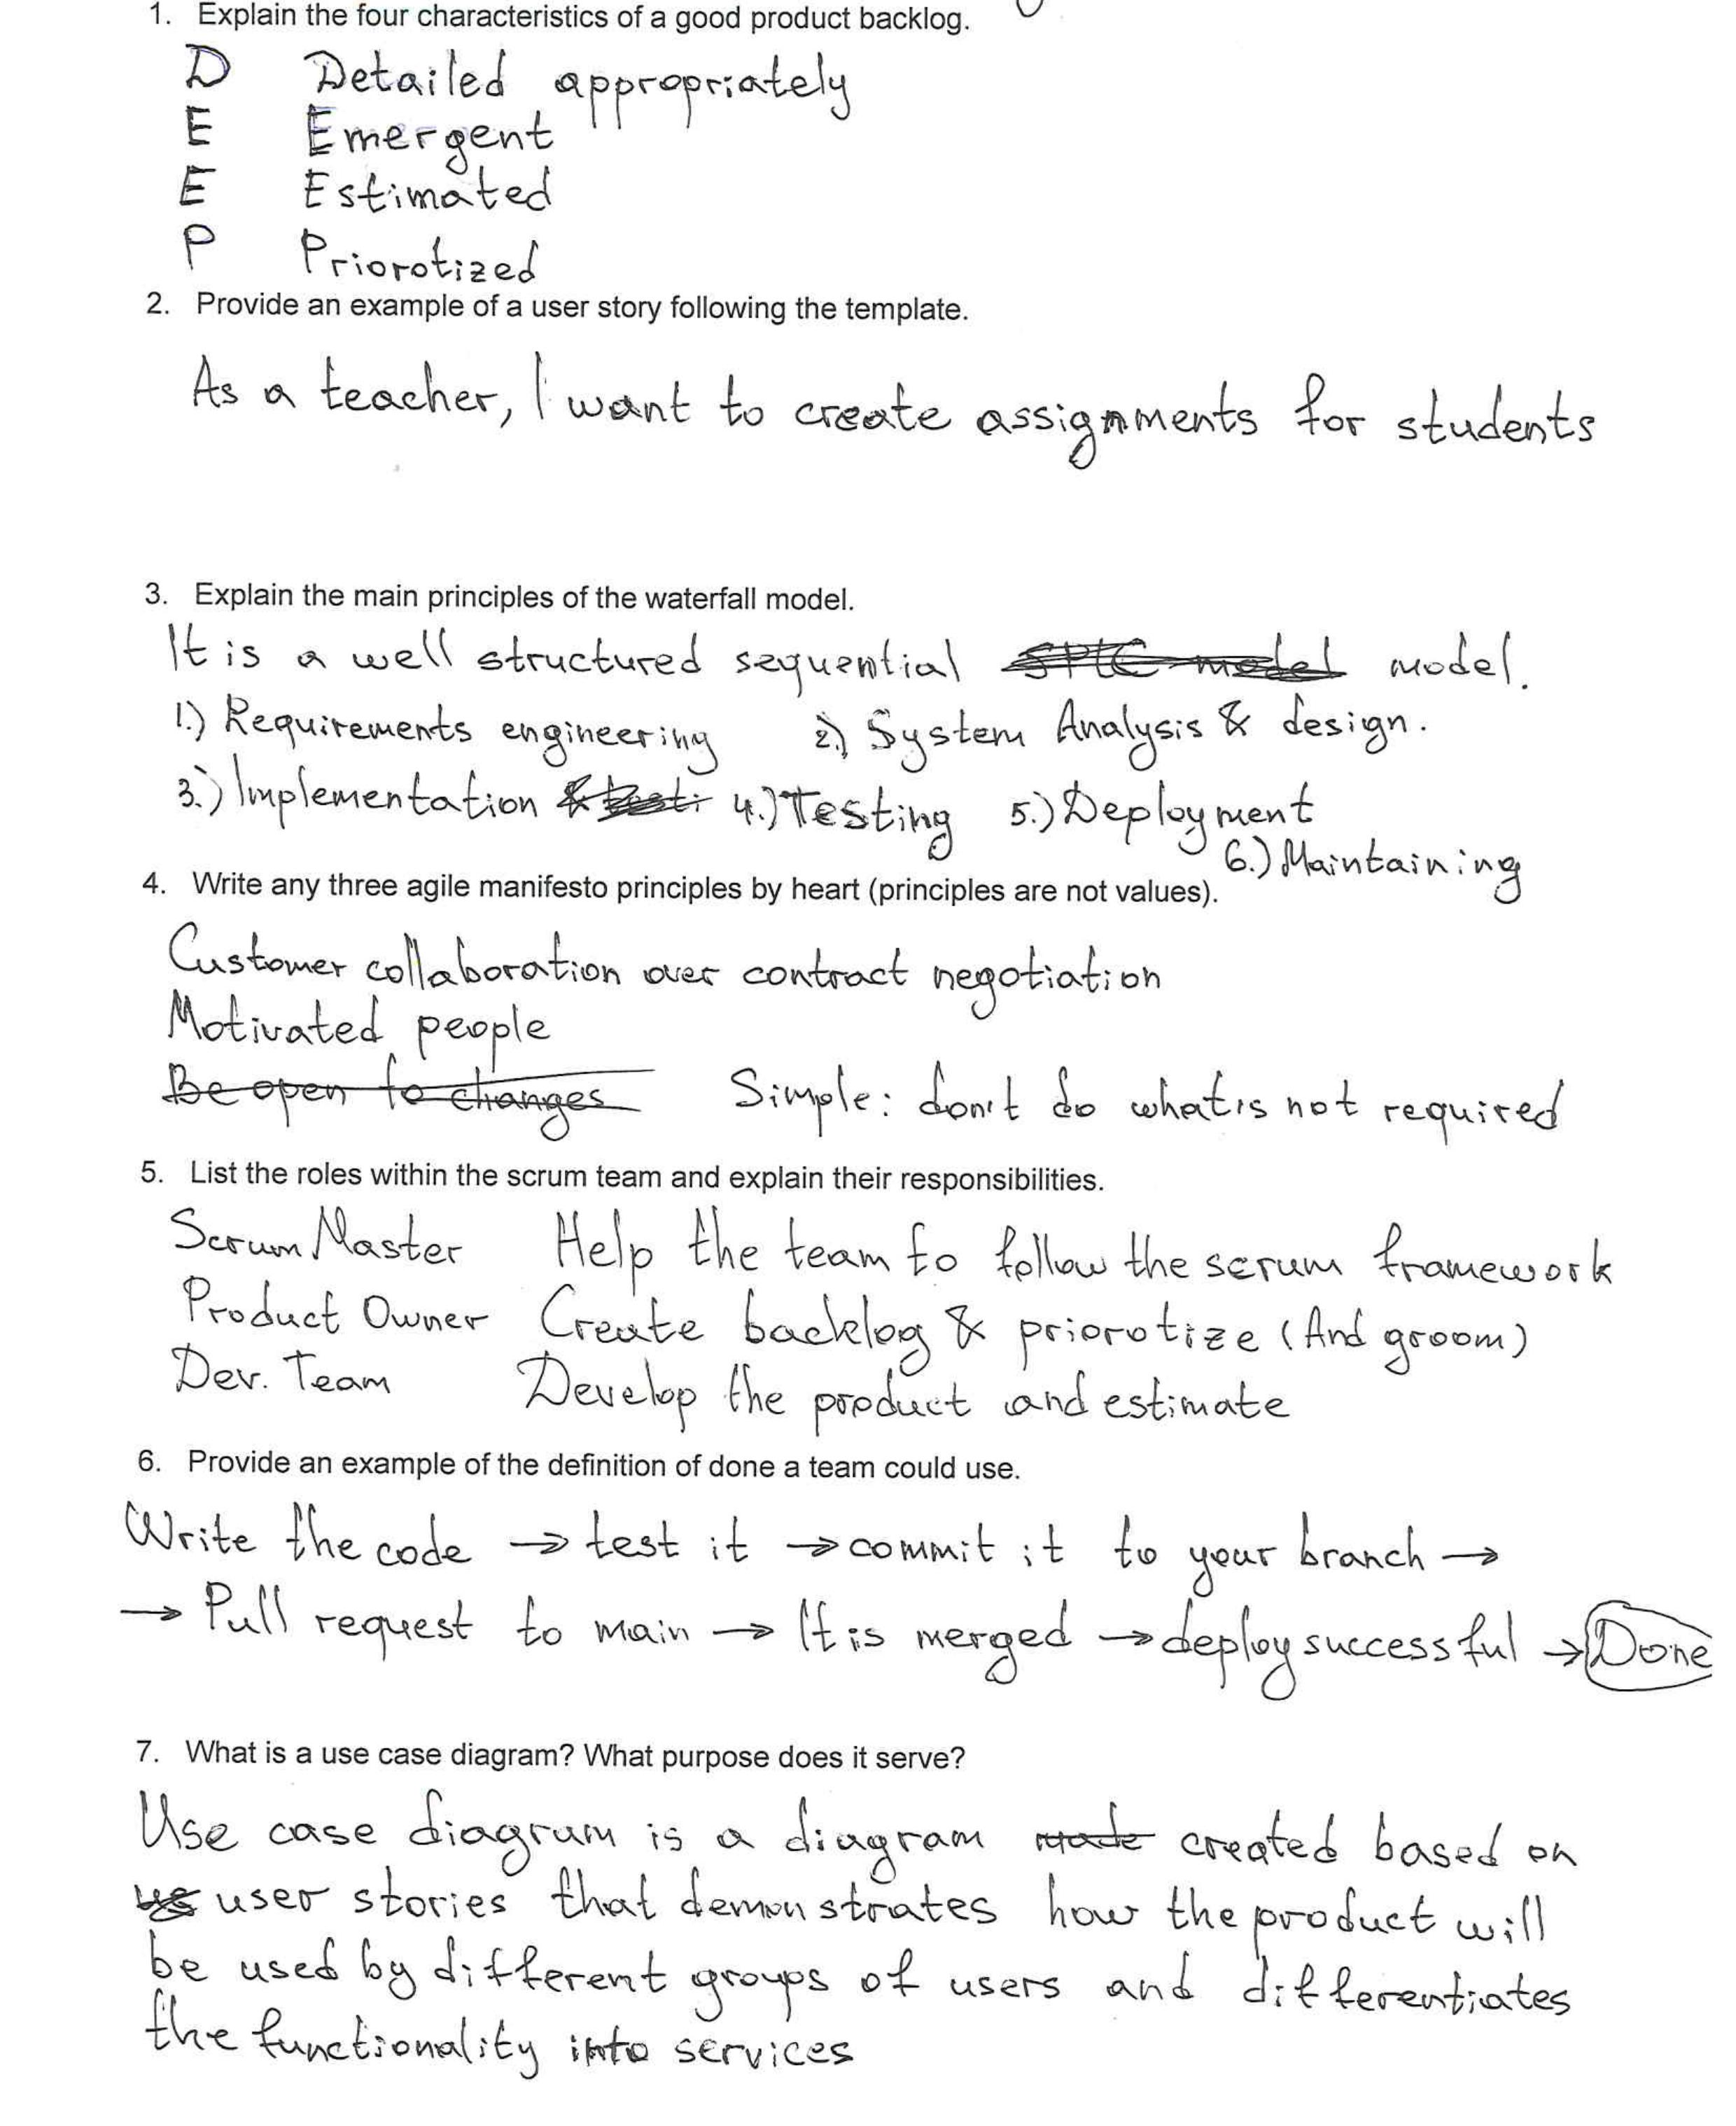 1. Explain the four characteristics of a good product backlog.
D Detailed appropriately
E Emergent
E Estimated
P Priorotized
2. Provide an example of a user story following the template.
As a teacher, I want to create assignments for students
3. Explain the main principles of the waterfall model.
It is a well structured sequential model.
1.) Requirements engineering 2.) System Analysis & design.
3.) Implementation 4.) Testing 5.) Deployment
6.) Maintaining
4. Write any three agile manifesto principles by heart (principles are not values).
Customer collaboration over contract negotiation
Motivated people
Be open to changes Simple: don't do what is not required
5. List the roles within the scrum team and explain their responsibilities.
Scrum Master Help the team to follow the scrum framework
Product Owner Create backlog & priorotize (And groom)
Dev. Team Develop the product and estimate
6. Provide an example of the definition of done a team could use.
Write the code → test it → commit it to your branch →
→ Pull request to main → It is merged → deploy successful → Done
7. What is a use case diagram? What purpose does it serve?
Use case diagram is a diagram made created based on
user stories that demonstrates how the product will
be used by different groups of users and differentiates
the functionality into services